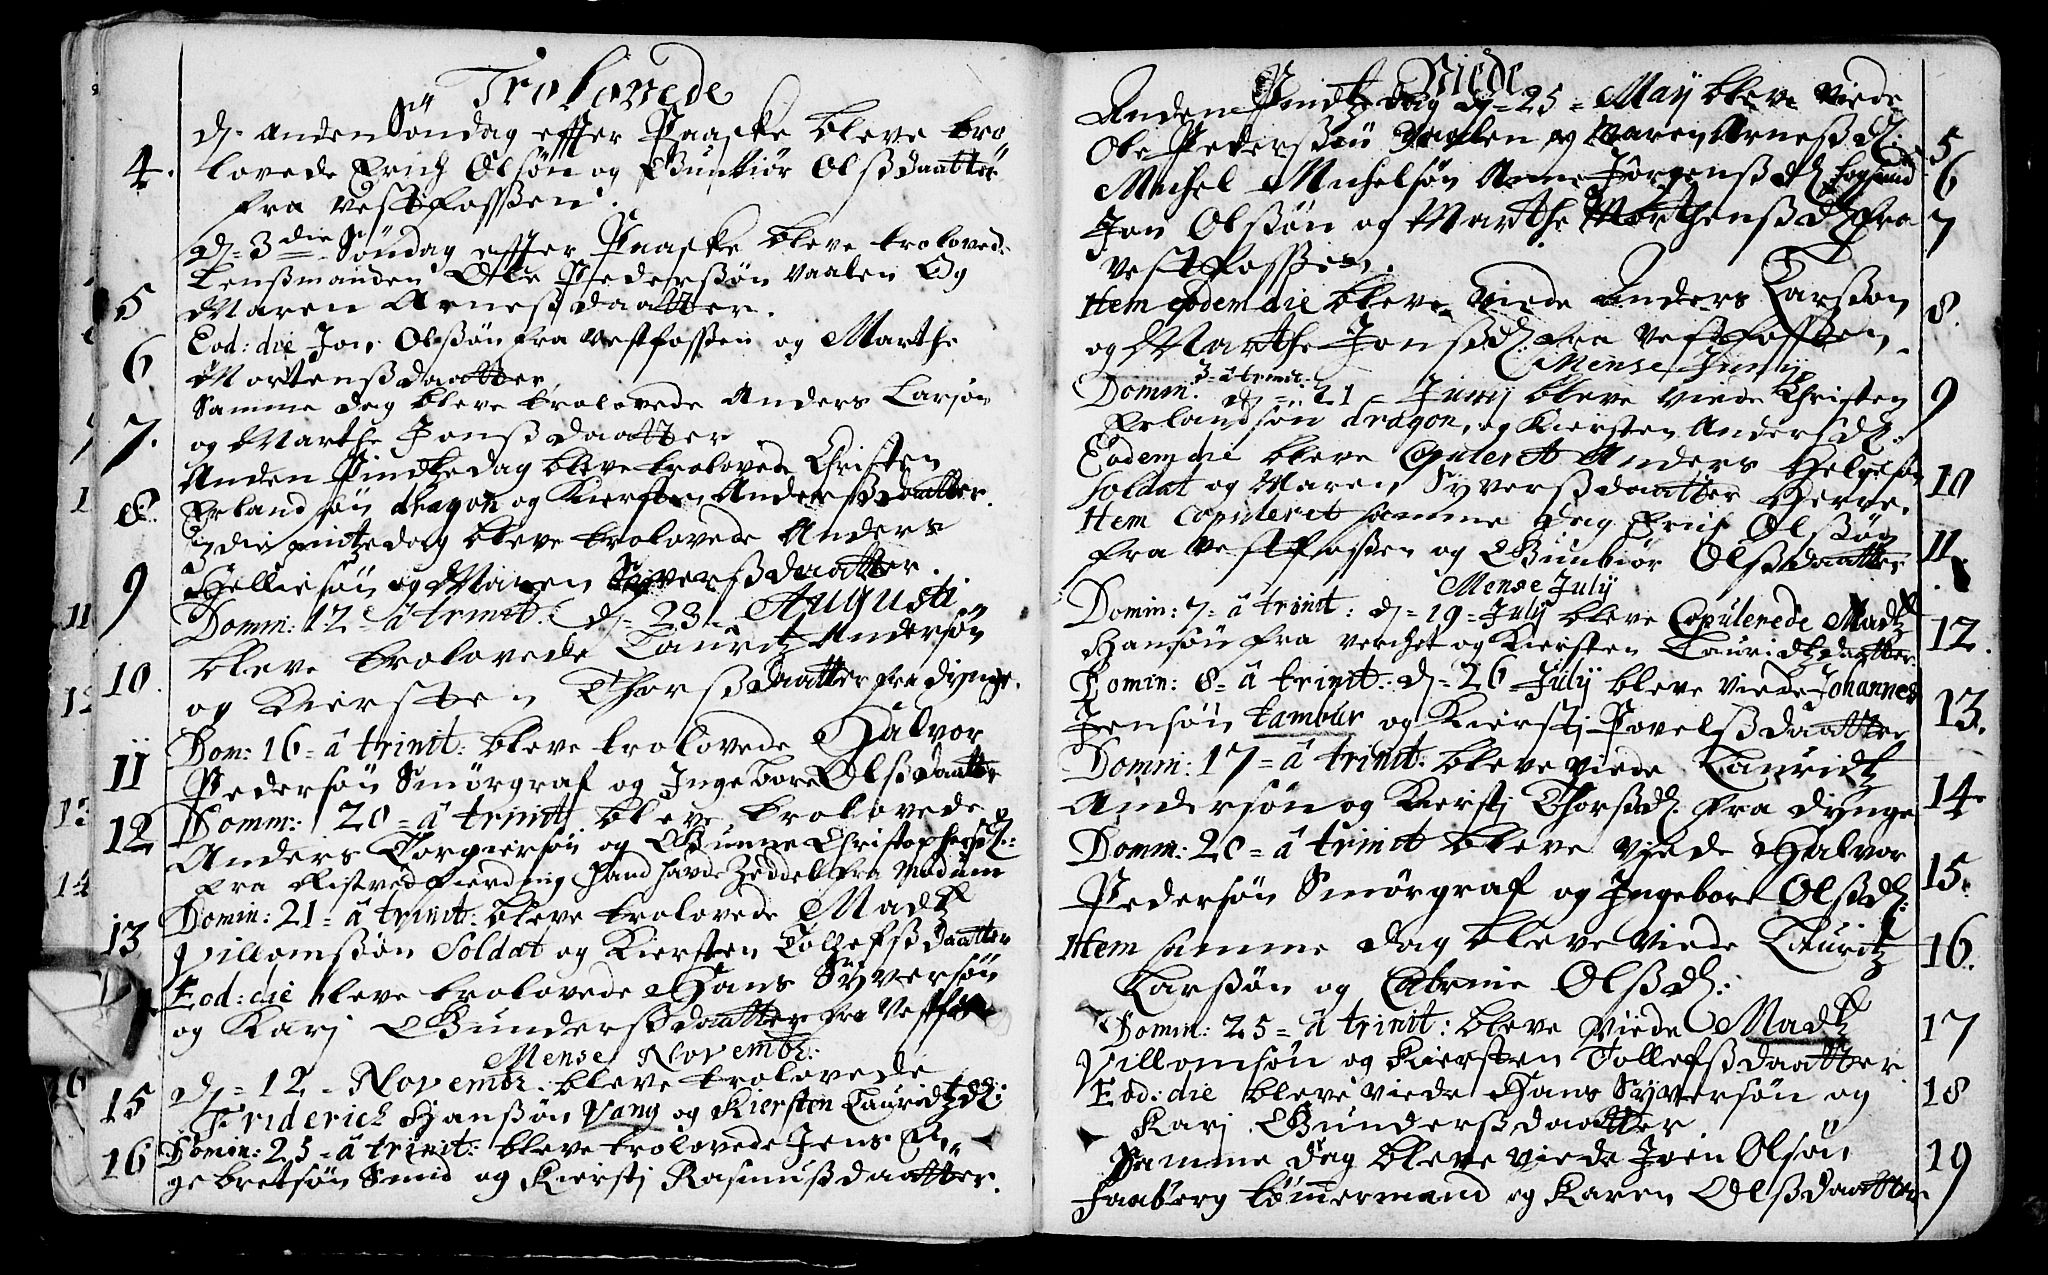 Trolovede
4. dn. Anden Søndag effter Paaske bleve tro
lovede Erich Olsøn og Gunbiør Olsdaatter
fra Vestfossen.
dn. 3die Søndag effter Paaske bleve trolovede
5 Lensmanden Ole Pedersøn Vaalen og
Maren Arnesdaatter.
6 Eod: die Jon Olssøn fra Vestfossen og Marthe
Mortensdaatter
Samme dag bleve trolovede Anders Larsøn
7. og Marthe Jonsdaatter
Anden Pindtzedag bleve trolovede Christen
8. Erlandsøn dragon og Kiersten Andersdaatter.
3die pintzedag bleve trolovede Anders
9 Hellie søn og Maren Syversdaatter.
Domin: 12 = â trinit. dn = 23 = Augusti
bleve trolovede Lauritz Andersøn
10. og Kiersten Thorsdaatter fra Dynge.
Dom: 16 = â trinit: bleve trolovede Halvor
11 Pedersøn Smörgraf og Ingebore Olsdaatter
12 Domin: 20 = â trinit bleve trolovede
Anders Torgiersøn og Gunne Christophersd:
fra fierding hand havde Zeddel fra Modum
Domin: 21 = â trinit: bleve trolovede Madtz
13 Villomssøn Soldat og Kiersten Tollefsdaatter
Eod: die bleve trolovede Hans Syversøn
og Karj Gundersdaatter fra Vestfos
Mense Novembr:
dn = 12 = Novembr. bleve trolovede
15 Friderich Hanssøn Vang og Kiersten Lauridtzd:
16 Domin: 23 = â trinit: bleve trolovede Jens En=
gebretsøn Smid og Kierstj Rasmusdaatter.
Viede
Anden Pindtzedag dn = 25 = Maij bleve Viede
Ole Pederssøn Vaalen og Maren Arnesd. 5
Michel Michelsøn Anne Jörgensd 6
Jon Olssøn og Marthe Morthensd fra 7
Vestfossen.
Item eodem die bleve Viede Anders Larssøn 8.
og Marthe Jonsd: fra Vestfossen.
Mense Junij
Domin: 3 = â trinit: dn = 21 = Junij bleve Viede Christen 9
Erlandsøn dragon, og Kiersten Andersd:
Eodem die bleve Copuleret Anders Helgesøn
Soldat og Maren Syversdaatter 10
Item Copuleret samme dag Erich Olssøn
fra Vestfossen og Gunbiør Olsdaatter 11.
Mense July
Domin: 7 = â trinit: dn = 19 = July bleve Copulerede Madtz
Hansøn fra Verchet og Kiersten Lauridtzdaatter. 12.
Domin: 8 = â trinit: dn = 26 July bleve Viede Johannes
Jensøn tambur og Kierstj Povelsdaatter 13.
Domin: 17 = â trinit: bleve Viede Lauridtz
Andersøn og Kierstj Thorsd. fra Dynge 14.
Domin: 20 = â trinit bleve Viede Halvor
Pedersøn Smörgraf og Ingebore Olsd: 15.
Item samme dag bleve Viede Lauritz 16.
Larssøn og Catrine Olsd:
Domin: 25 = â trinit: bleve Viede Madtz 17
Villomsøn og Kiersten Tollefsdaatter
Eod: die bleve Viede Hans Syversøn og 18
Karj Gundersdaatter
Samme dag bleve Viede Joen Olsøn 19
Faaberg tømmermand og Karen Olsdaatter